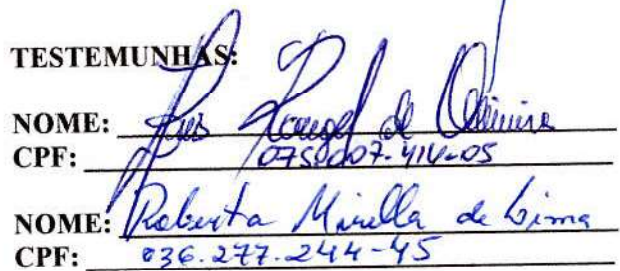 TESTEMUNHAS:
NOME: Luis Rangel de Oliveira
CPF: 075.007.414-05
NOME: Roberta Mirella de Lima
CPF: 036.277.244-45